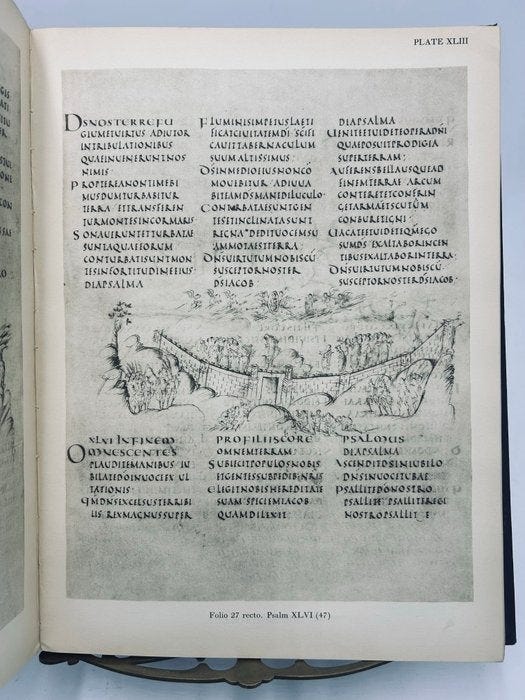 PLATE XLIII
DSNOSTERREFU
GIUMETUIRTUS ADIUTOR
INTRIBULATIONIBUS
QUAEINUENERUNTNOS
NIMIS
PROPTEREANONTIMEBI
MUSDUMTURBABITUR
TERRA ETTRANSFEREN
TURMONTESINCORMARIS
SONAUERUNTETTURBATAE
SUNTAQUAEEORUM
CONTURBATISUNTMON
TESINFORTITUDINEEIUS
DIAPSALMA
FLUMINISIMPETUSLAETI
FICATCIUITATEMDI SCIFI
CAUITTABERNACULUM
SUUMALTISSIMUS·
DSINMEDIOEIUSNONCŌ
MOUEBITUR ADIUUA
BITEAMDSMANEDILUCULO·
CONTURBATAESUNTGEN
TESETINCLINATASUNT
REGNA DEDITUOCEMSU
AMMOTAESTTERRA·
DNSUIRTUTUMNOBISCŪ
SUSCEPTORNOSTER
DSIACOB
DIAPSALMA
UENITEETUIDETEOPERADNI
QUAEPOSUITPRODIGIA
SUPERTERRAM·
AUFERENSBELLAUSQUEAD
FINEMTERRAE ARCUM
CONTERETETCONFRIN
GETARMAETSCUTŪM
CONBURETIGNI·
UACATEETUIDETEQMEGO
SUMDS EXALTABORINGEN
TIBUSEXALTABORINTERRA·
DNSUIRTUTUMNOBISCŪ
SUSCEPTORNOSTERDSIACOB·
XLVI INFINEM PROFILIISCORE PSALMUS
OMNESGENTES
PLAUDITEMANIBUS IU
BILATEDOINUOCEEXUL
TATIONIS·
QMDNSEXCELSUSTERRIBI
LIS REXMAGNUSSUPER
OMNEMTERRAM·
SUBIECITPOPULOSNOBIS
ETGENTESSUBPEDIBNRIS
ELEGITNOBISHEREDITATĒ
SUAM SPECIEMIACOB
QUAMDILEXIT·
DIAPSALMA
ASCENDITDSINIUBILO
DNSINUOCETUBAE·
PSALLITEDONOSTRO
PSALLITE PSALLITEREGI
NOSTROPSALLITE
Folio 27 recto. Psalm XLVI (47)